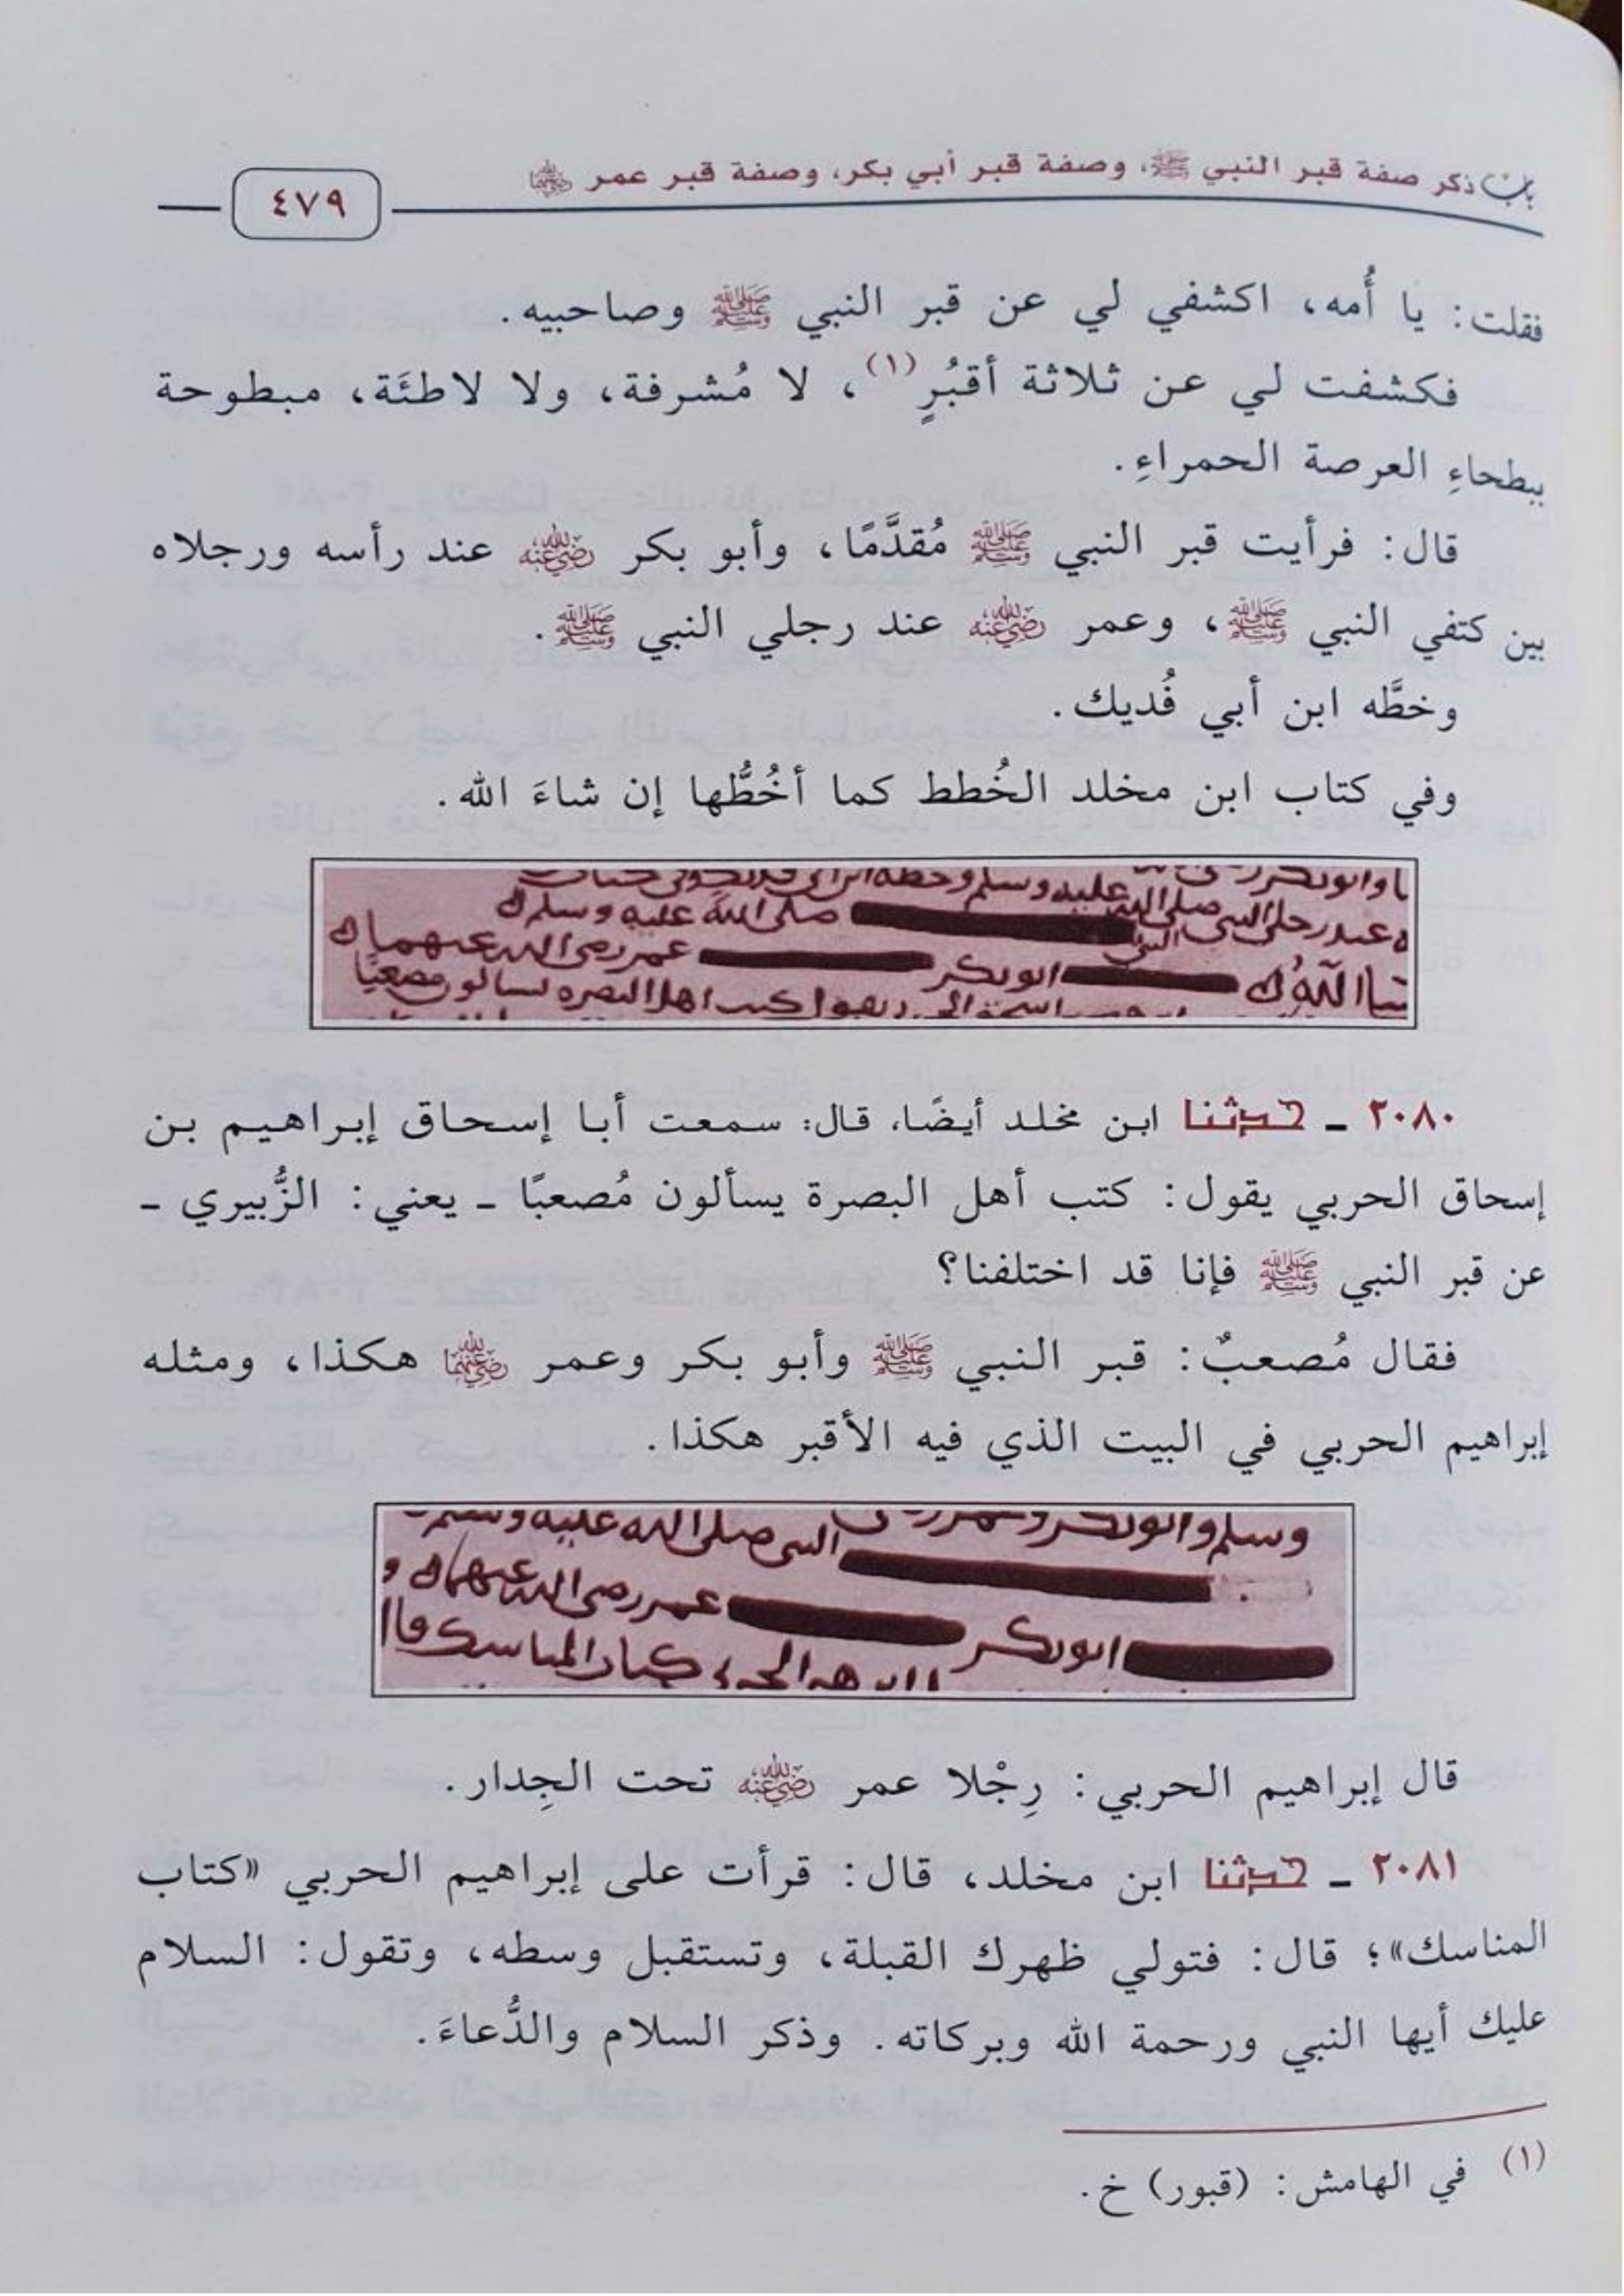 باب ذكر صفة قبر النبي ﷺ، وصفة قبر أبي بكر، وصفة قبر عمر رضي الله عنهما
٤٧٩
فقلت: يا أُمه، اكشفي لي عن قبر النبي ﷺ وصاحبيه.
فكشفت لي عن ثلاثة أقبُرٍ(١)، لا مُشرفة، ولا لاطئَة، مبطوحة
ببطحاءِ العرصة الحمراءِ.
قال: فرأيت قبر النبي ﷺ مُقدَّمًا، وأبو بكر رضي الله عنه عند رأسه ورجلاه
بين كتفي النبي ﷺ، وعمر رضي الله عنه عند رجلي النبي ﷺ.
وخطَّه ابن أبي فُديك.
وفي كتاب ابن مخلد الخُطط كما أخُطُّها إن شاءَ الله.
عليه وسلم وخطه ابن أبي
عند رحلي النبي صلى الله
النبي صلى الله عليه وسلم
شا الله ابو بكر عمر رضي الله عنهما
كتب اهل البصره يسالون مصعبا
٢٠٨٠ ـ حدثنا ابن مخلد أيضًا، قال: سمعت أبا إسحاق إبراهيم بن
إسحاق الحربي يقول: كتب أهل البصرة يسألون مُصعبًا ـ يعني: الزُّبيري ـ
عن قبر النبي ﷺ فإنا قد اختلفنا؟
فقال مُصعبٌ: قبر النبي ﷺ وأبو بكر وعمر رضي الله عنهما هكذا، ومثله
إبراهيم الحربي في البيت الذي فيه الأقبر هكذا.
وسلم وابو بكر وعمر
النبي صلى الله عليه وسلم
ابو بكر عمر رضي الله عنهما و
كتاب المناسك قال
قال إبراهيم الحربي: رِجْلا عمر رضي الله عنه تحت الجِدار.
٢٠٨١ ـ حدثنا ابن مخلد، قال: قرأت على إبراهيم الحربي «كتاب
المناسك»؛ قال: فتولي ظهرك القبلة، وتستقبل وسطه، وتقول: السلام
عليك أيها النبي ورحمة الله وبركاته. وذكر السلام والدُّعاءَ.
(١) في الهامش: (قبور) خ.